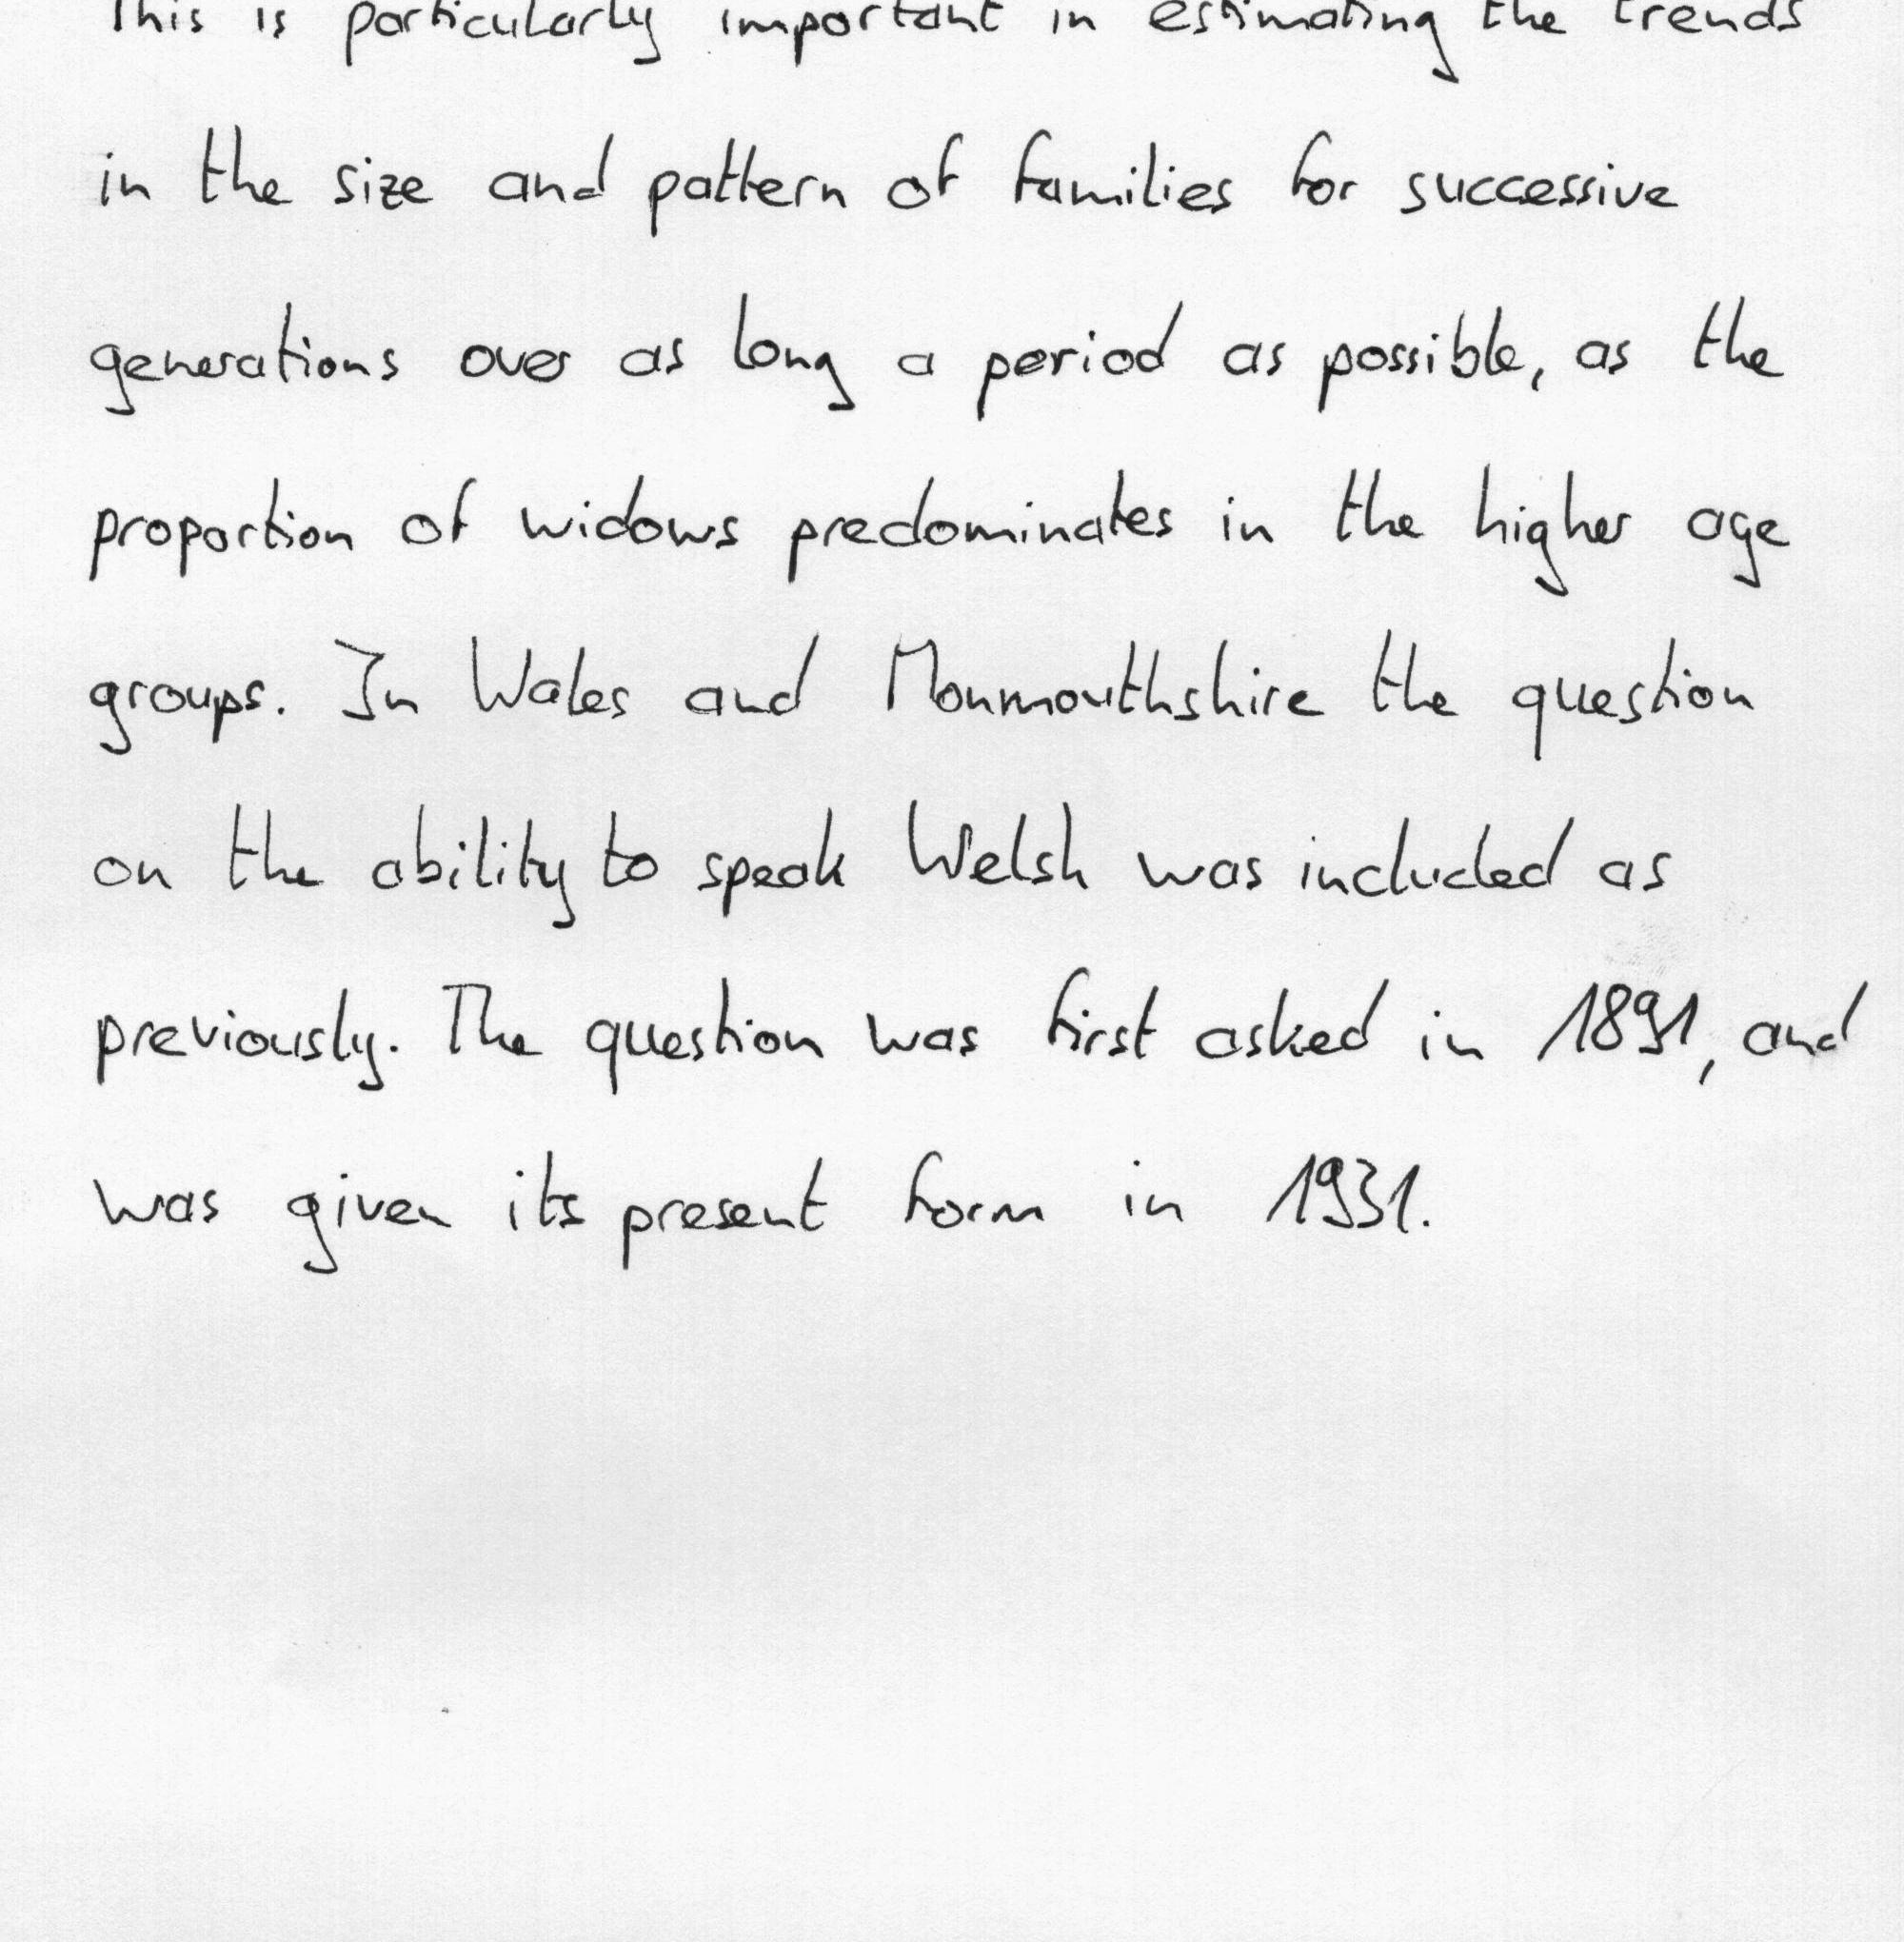 This is particularly important in estimating the trends
in the size and pattern of families for successive
generations over as long a period as possible, as the
proportion of widows predominates in the higher age
groups. In Wales and Monmouthshire the question
on the ability to speak Welsh was included as
previously. The question was first asked in 1891, and
was given its present form in 1931.